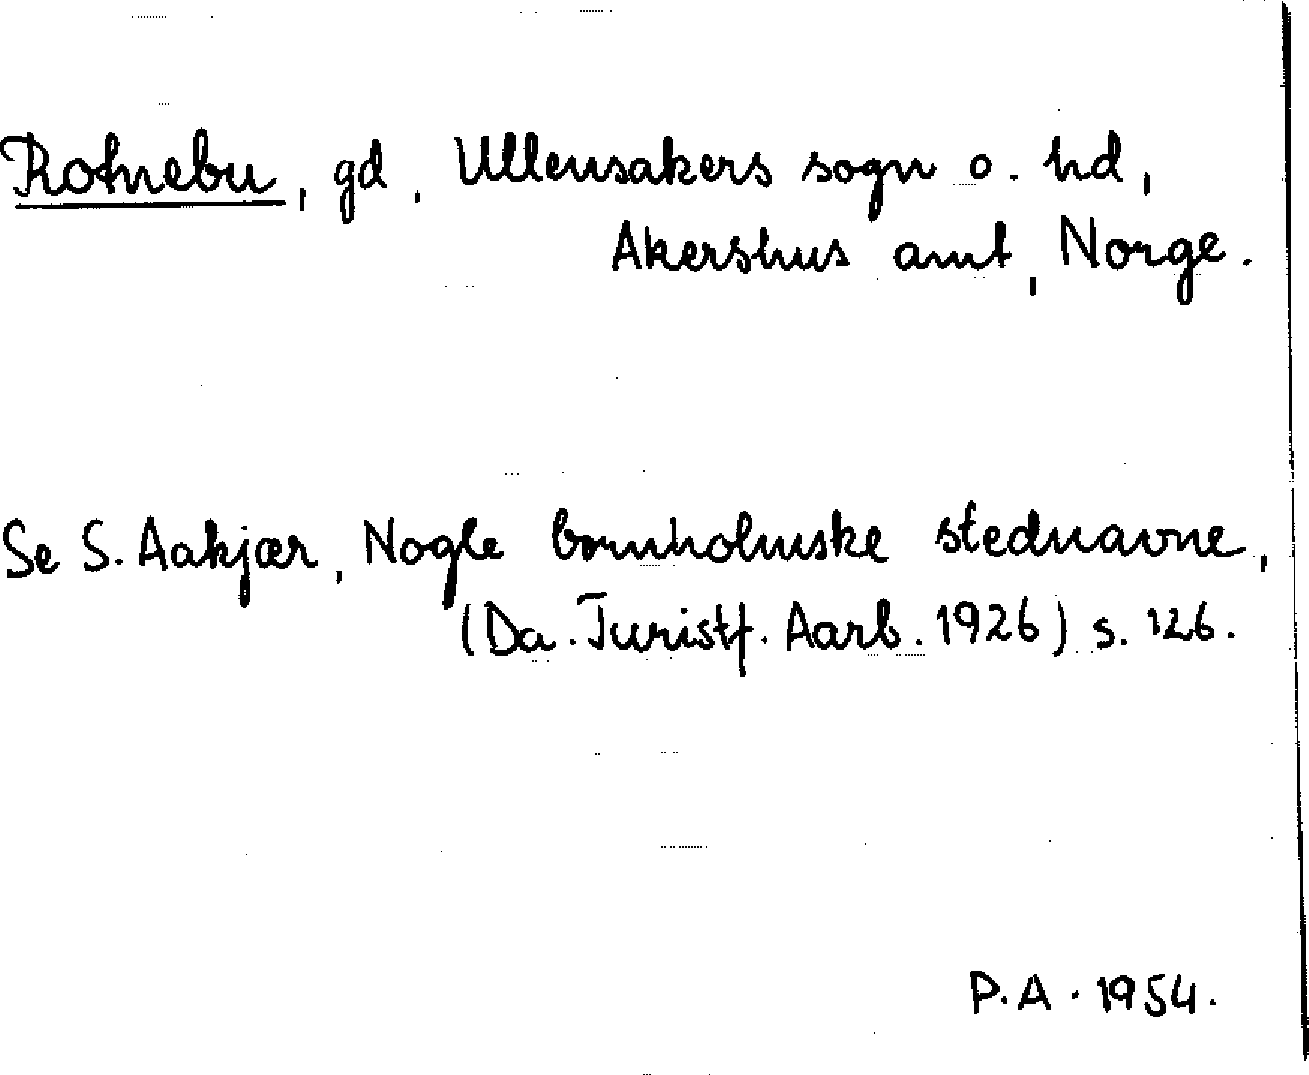 Rotnebu, gd, Ullensakers sogn o. hd,
Akershus amt, Norge.
Se S. Aakjær, Nogle bornholmske stednavne,
(Da. Turistf. Aarb. 1926) s. 126.
P.A. 1954.